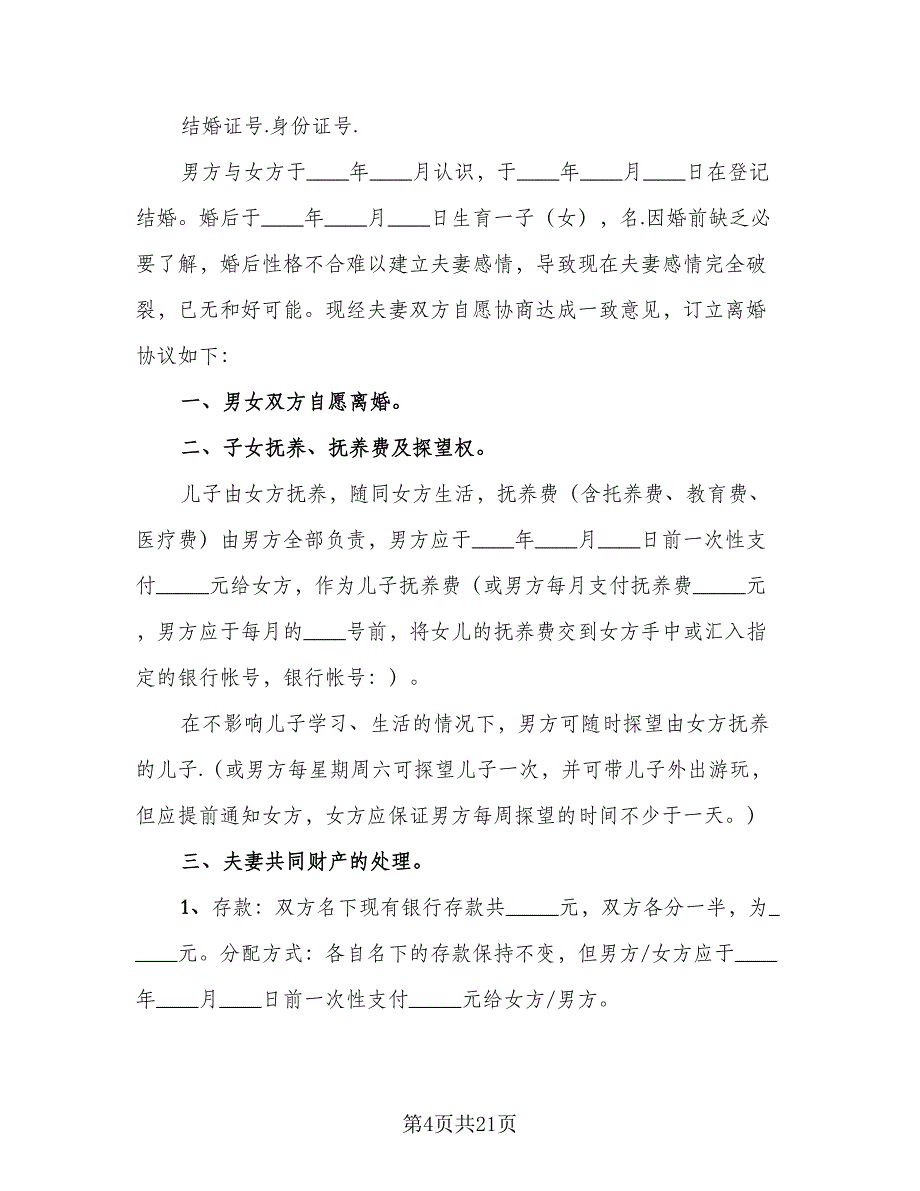 结婚证号.身份证号.
男方与女方于____年____月认识，于____年____月____日在登记
结婚。婚后于____年____月____日生育一子（女），名.因婚前缺乏必
要了解，婚后性格不合难以建立夫妻感情，导致现在夫妻感情完全破
裂，已无和好可能。现经夫妻双方自愿协商达成一致意见，订立离婚
协议如下：
一、男女双方自愿离婚。
二、子女抚养、抚养费及探望权。
儿子由女方抚养，随同女方生活，抚养费（含托养费、教育费、
医疗费）由男方全部负责，男方应于____年____月____日前一次性支
付_____元给女方，作为儿子抚养费（或男方每月支付抚养费_____元
，男方应于每月的____号前，将女儿的抚养费交到女方手中或汇入指
定的银行帐号，银行帐号：）。
在不影响儿子学习、生活的情况下，男方可随时探望由女方抚养
的儿子.（或男方每星期周六可探望儿子一次，并可带儿子外出游玩，
但应提前通知女方，女方应保证男方每周探望的时间不少于一天。）
三、夫妻共同财产的处理。
1、存款：双方名下现有银行存款共_____元，双方各分一半，为_
____元。分配方式：各自名下的存款保持不变，但男方/女方应于____
年____月____日前一次性支付_____元给女方/男方。
第4页共21页